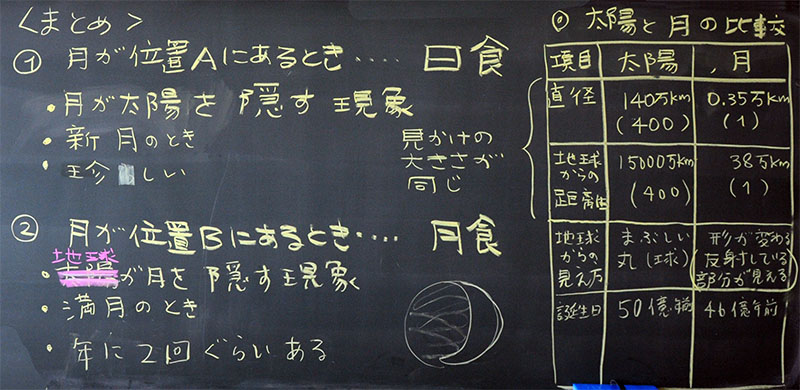 <まとめ>
① 月が位置Aにあるとき‥‥ 日食
・月が太陽を隠す現象
・新月のとき
・珍しい
見かけの
大きさが
同じ
② 月が位置Bにあるとき‥‥ 月食
地球
・太陽が月を隠す現象
・満月のとき
・年に2回ぐらいある
◎ 太陽と月の比較
項目 太陽 月
直径 140万km 0.35万km
(400) (1)
地球からの距離 15000万km 38万km
(400) (1)
地球からの見え方 まぶしい 形が変わる
丸(球) (反射している
部分が見える)
誕生日 50億年前 46億年前